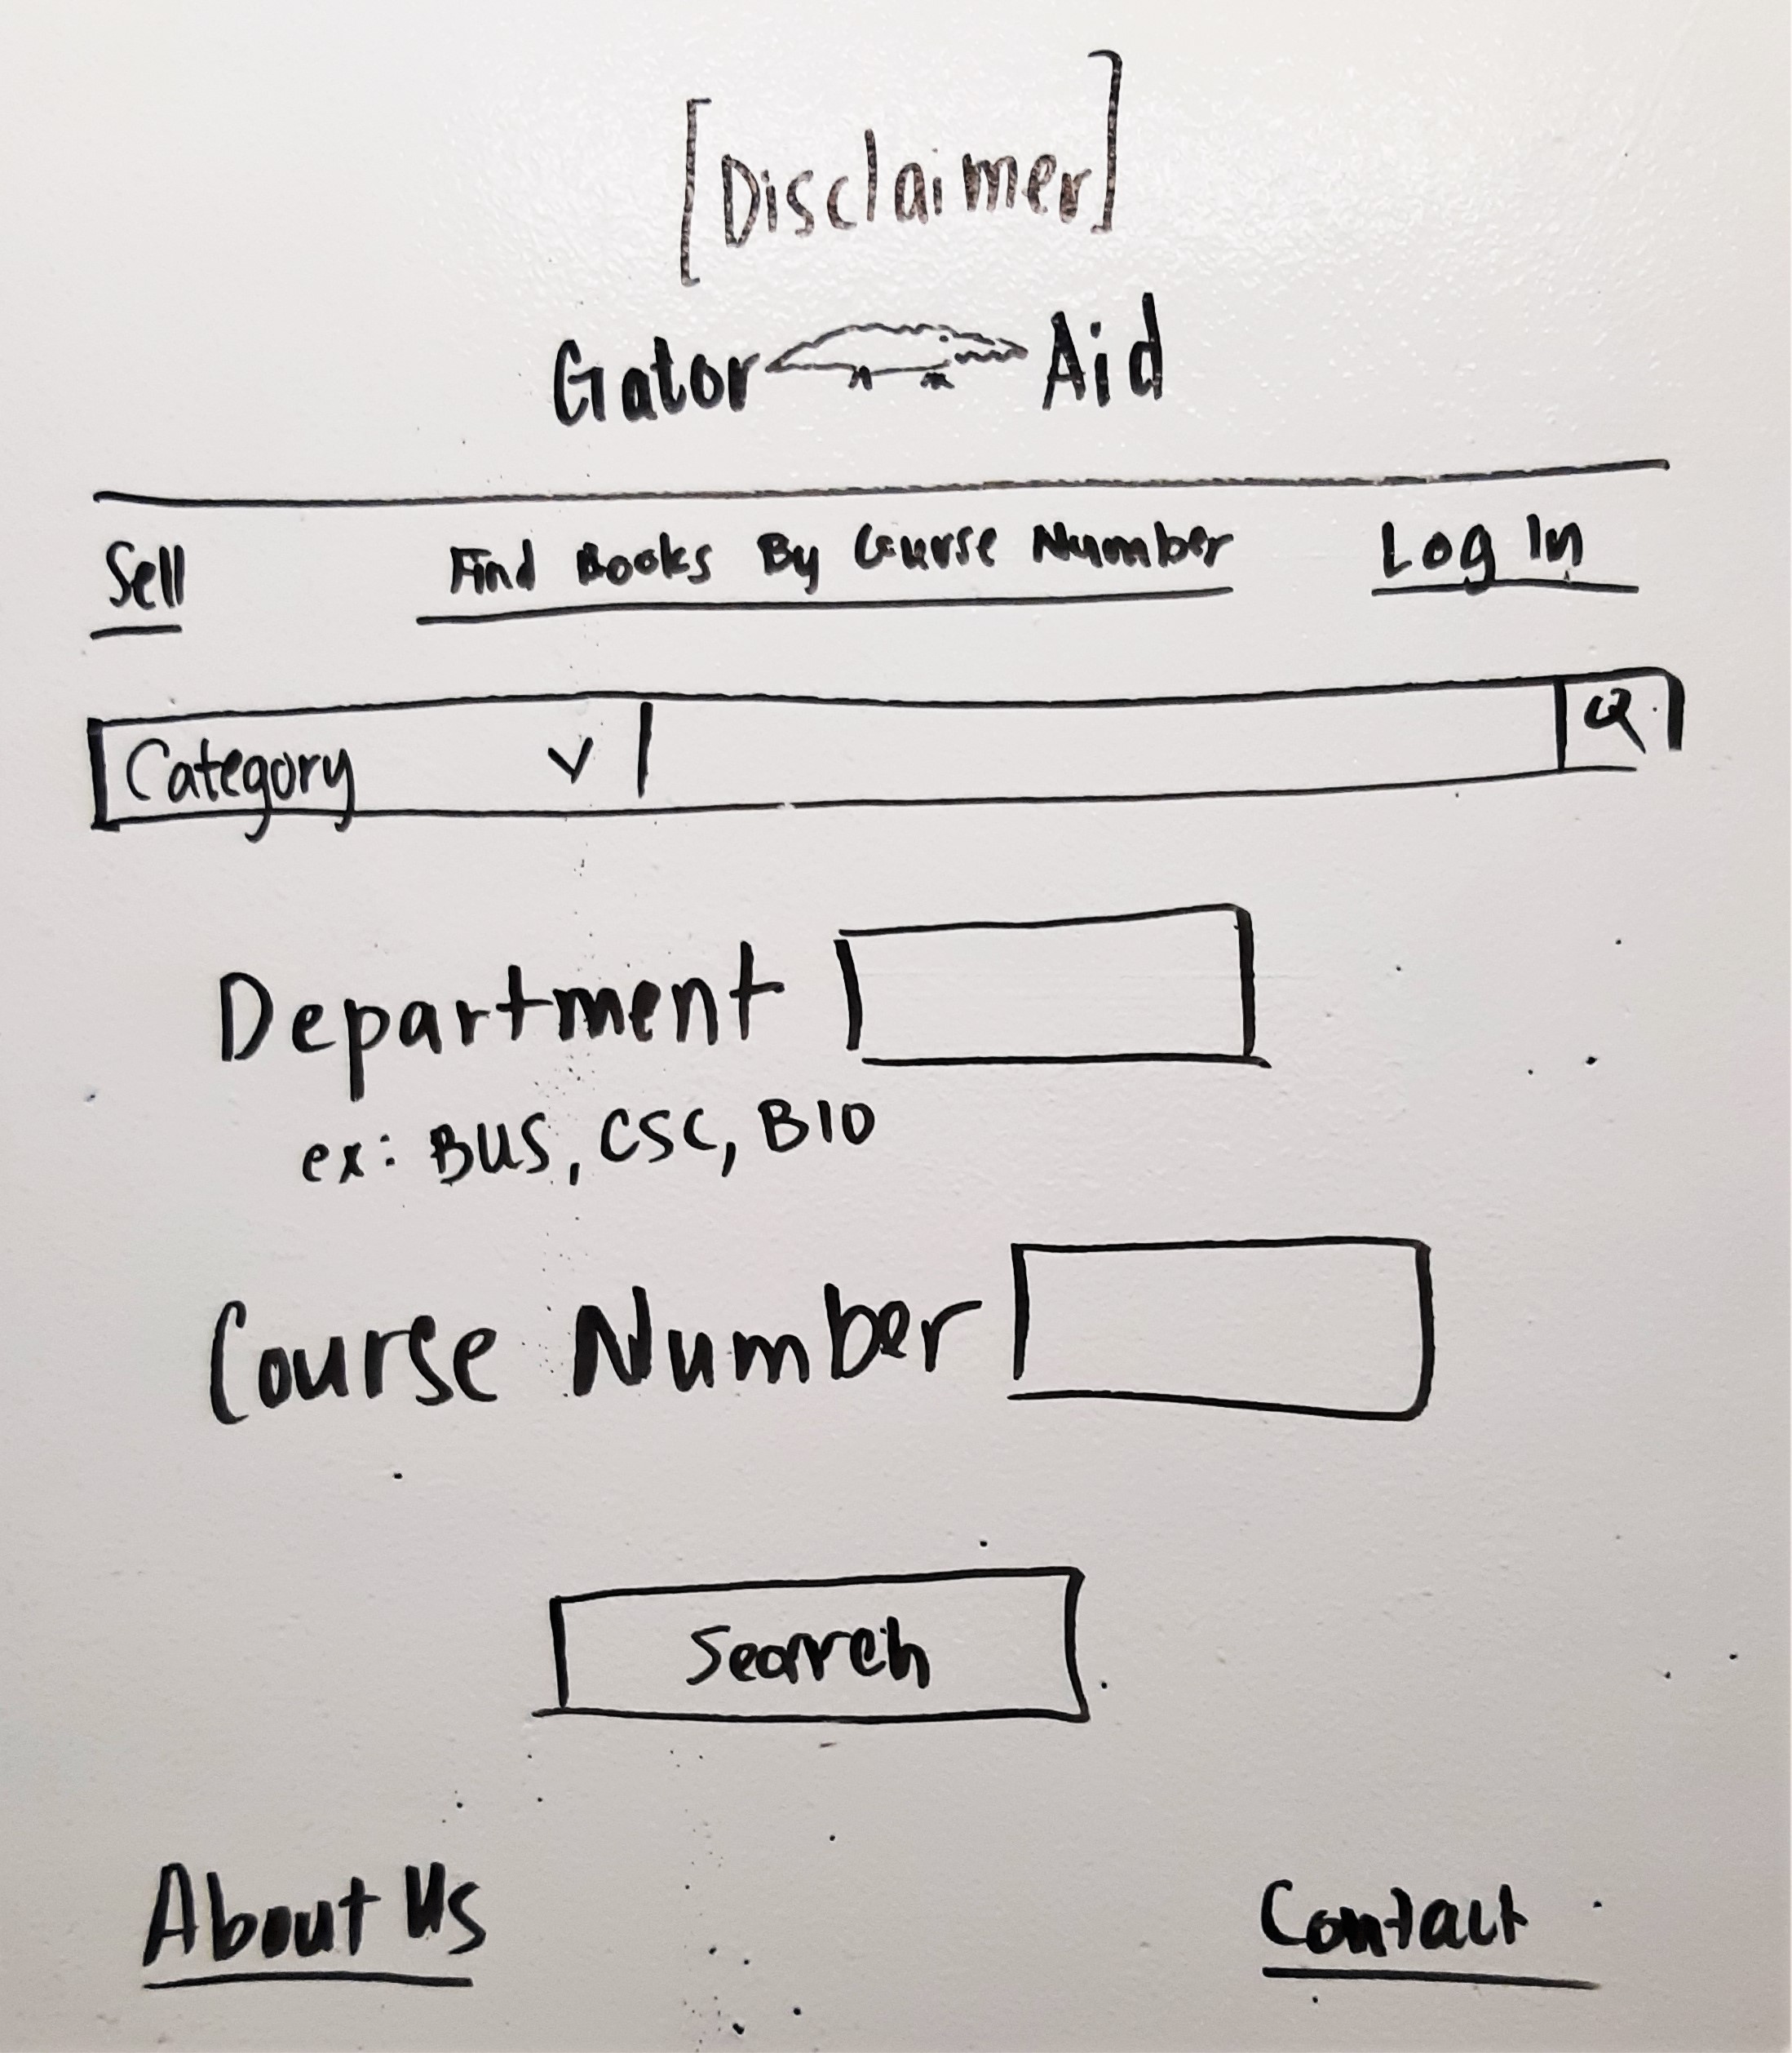 [Disclaimer]
Gator Aid
Sell Find Books By Course Number Log In
Category
Department
ex: BUS, CSC, BIO
Course Number
Search
About Us
Contact